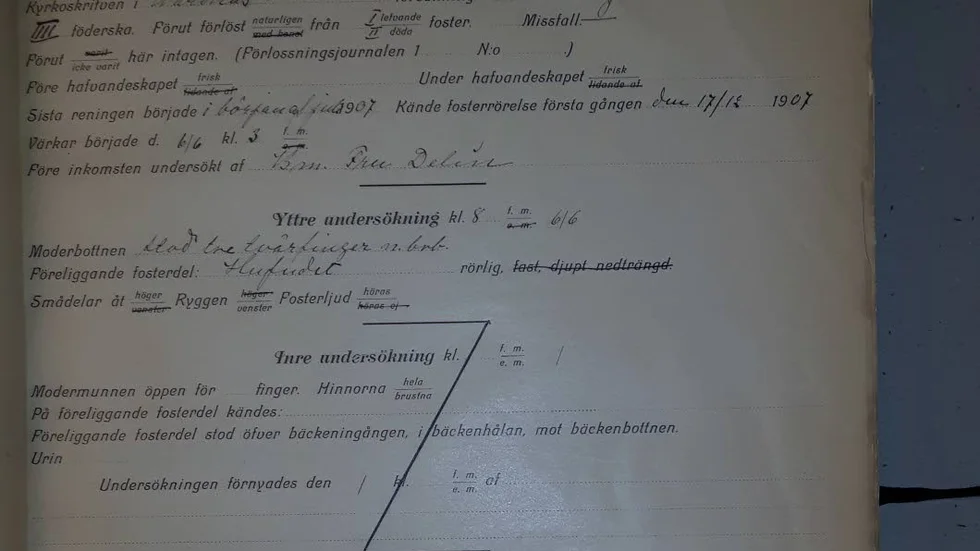 Kyrkoskrifven i
III föderska. Förut förlöst naturligen / med konst från I lefvande / II döda foster. Missfall.
Förut varit / icke varit här intagen. (Förlossningsjournalen 1 N:o .)
Före hafvandeskapet frisk / lidande af Under hafvandeskapet frisk / lidande af
Sista reningen började i början af juli 1907 Kände fosterrörelse första gången den 17/12 1907
Värkar började d. 6/6 kl. 3 f. m. / e. m.
Före inkomsten undersökt af Bm. Fru Delin
Yttre undersökning kl. 8 f. m. / e. m. 6/6
Moderbottnen stod tre tvärfinger n. brb.
Föreliggande fosterdel: Hufudet rörlig, fast, djupt nedträngd.
Smådelar åt höger / venster Ryggen höger / venster Fosterljud höras / höras ej
Inre undersökning kl. f. m. / e. m. /
Modermunnen öppen för finger. Hinnorna hela / brustna
På föreliggande fosterdel kändes:
Föreliggande fosterdel stod öfver bäckeningången, i bäckenhålan, mot bäckenbottnen.
Urin
Undersökningen förnyades den / kl. f. m. / e. m. af